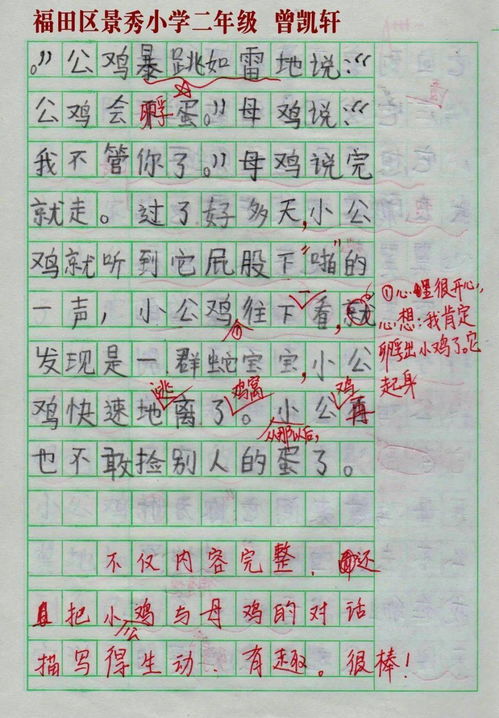 福田区景秀小学二年级 曾凯轩
。”公鸡暴跳如雷地说：“
公鸡会孵蛋。”母鸡说：“
我不管你了。”母鸡说完
就走。过了好多天，小公
鸡就听到它屁股下“啪”的
一声，小公鸡往下一看，就
①心里很开心，
心想：我肯定
孵出小鸡了。它
起身
发现是一群蛇宝宝，小公
鸡快速地逃离了鸡窝。从那以后，小公鸡再
也不敢捡别人的蛋了。
不仅内容完整，还
把小公鸡与母鸡的对话
描写得生动、有趣。很棒！